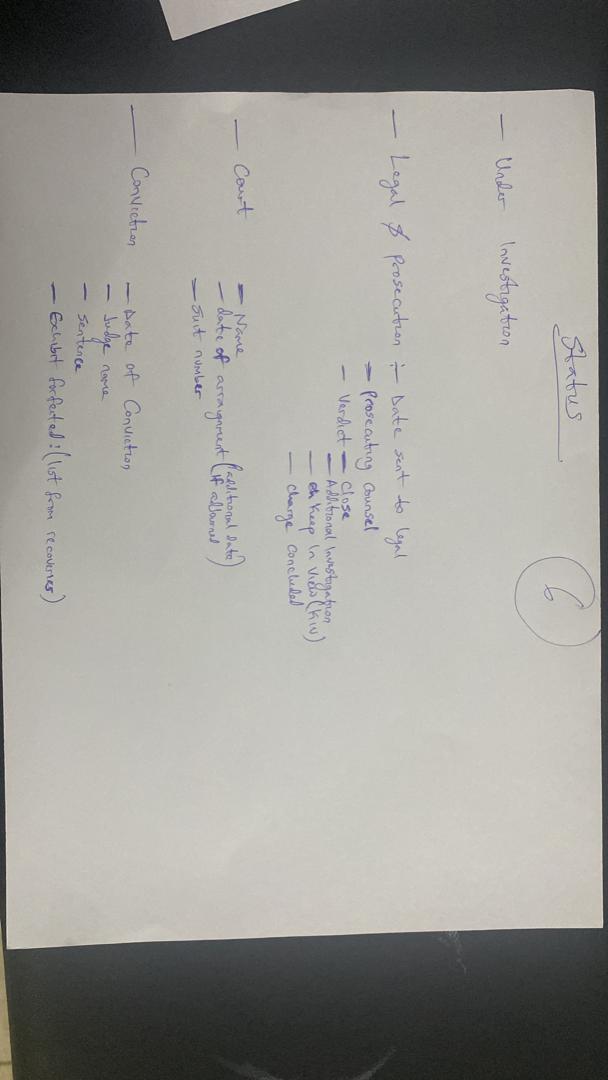 Status
6
— Under Investigation
— Legal & prosecution :- Date sent to legal
— Prosecuting Counsel
— Verdict — Close
— Additional Investigation
— Keep In View (KIV)
— Charge Concluded
— Court — Name
— date of arraignment (additional date
If adjourned)
— Suit number
— Conviction — Date of Conviction
— Judge name
— Sentence
— Exhibit forfeited: (list from recoveries)